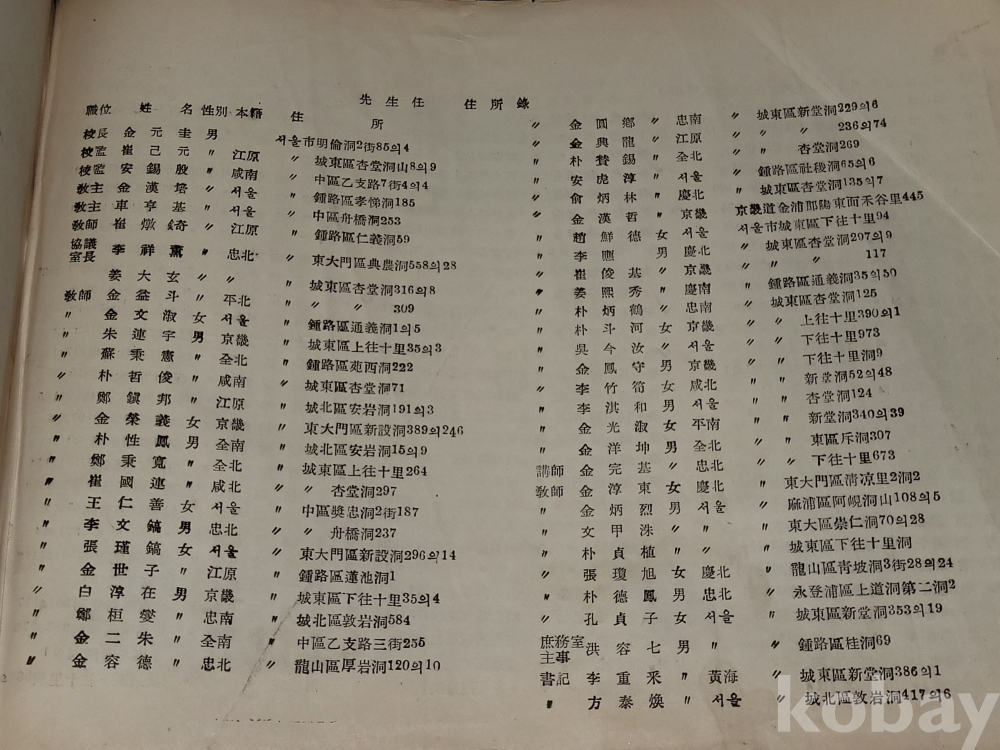 先生任 住所錄
職位 姓 名 性別 本籍 住 所
校長 金元圭 男 서울市明倫洞2街85의4
校監 崔己元 〃 江原 〃 城東區杏堂洞山8의9
校監 安錫殷 〃 咸南 〃 中區乙支路7街4의4
敎主 金漢培 〃 서울 〃 鍾路區孝悌洞185
敎主 車亨基 〃 서울 〃 中區舟橋洞253
敎師 崔燉錡 〃 江原 〃 鍾路區仁義洞59
協議室長 李祥薰 〃 忠北 〃 東大門區典農洞558의28
姜大玄 〃 〃 〃 城東區杏堂洞316의8
敎師 金益斗 〃 平北 〃 〃 〃 309
〃 金文淑 女 서울 〃 鍾路區通義洞1의5
〃 朱連宇 男 京畿 〃 城東區上往十里35의3
〃 蘇秉憲 〃 全北 〃 鍾路區苑西洞222
〃 朴哲俊 〃 咸南 〃 城東區杏堂洞71
〃 鄭鎭邦 〃 江原 〃 城北區安岩洞191의3
〃 金榮義 女 京畿 〃 東大門區新設洞389의246
〃 朴性鳳 男 全南 〃 城北區安岩洞15의9
〃 鄭秉寬 〃 全北 〃 城東區上往十里264
〃 崔國連 〃 咸北 〃 〃 杏堂洞297
〃 王仁善 女 서울 〃 中區奬忠洞2街187
〃 李文鎬 男 忠北 〃 〃 舟橋洞237
〃 張瑾鎬 女 서울 〃 東大門區新設洞296의14
〃 金世子 〃 江原 〃 鍾路區蓮池洞1
〃 白淳在 男 京畿 〃 城東區下往十里35의4
〃 鄭桓燮 〃 忠南 〃 城北區敦岩洞584
〃 金二朱 〃 全南 〃 中區乙支路三街235
〃 金容德 〃 忠北 〃 龍山區厚岩洞120의10
〃 金圓鄕 〃 忠南 〃 城東區新堂洞229의6
〃 金興龍 〃 江原 〃 〃 〃 236의74
〃 朴贊錫 〃 全北 〃 〃 杏堂洞269
〃 安虎淳 〃 서울 〃 鍾路區社稷洞65의6
〃 兪炳林 〃 慶北 〃 城東區杏堂洞135의7
〃 金漢哲 〃 京畿 京畿道金浦郡陽東面禾谷里445
〃 趙鮮德 女 서울 서울市城東區下往十里94
〃 李 男 慶北 〃 城東區杏堂洞297의9
〃 崔俊基 〃 京畿 〃 〃 〃 117
〃 姜熙秀 〃 慶南 〃 鍾路區通義洞35의50
〃 朴炳鶴 〃 忠南 〃 城東區杏堂洞125
〃 朴斗河 女 京畿 〃 〃 上往十里390의1
〃 吳今汝 〃 서울 〃 〃 下往十里973
〃 金鳳守 男 京畿 〃 〃 下往十里洞9
〃 李竹筍 女 咸北 〃 〃 新堂洞52의48
〃 李淇和 男 서울 〃 〃 杏堂洞124
〃 金光淑 女 平南 〃 〃 新堂洞340의39
〃 金洋坤 男 全北 〃 〃 東區斥洞307
講師 金完基 〃 忠北 〃 〃 下往十里673
敎師 金淳東 女 慶北 〃 東大門區淸凉里2洞2
〃 金炳烈 男 서울 〃 麻浦區阿峴洞山108의5
〃 文甲洙 〃 〃 〃 東大區崇仁洞70의28
〃 朴貞植 〃 〃 〃 城東區下往十里洞
〃 張瓊旭 女 慶北 〃 龍山區靑坡洞3街28의24
〃 朴德鳳 男 忠北 〃 永登浦區上道洞第二洞2
〃 孔貞子 女 서울 〃 城東區新堂洞353의19
庶務室主事 洪容七 男 〃 〃 鍾路區桂洞69
書記 李重釆 〃 黃海 〃 城東區新堂洞386의1
〃 方泰煥 〃 서울 〃 城北區敦岩洞417의6
kobay